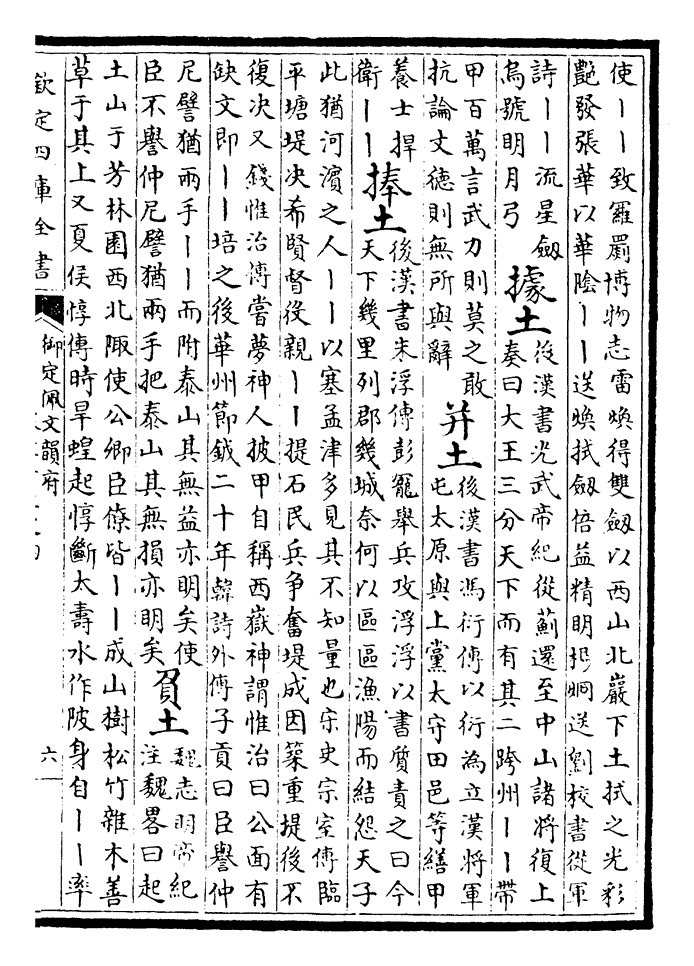 使丨丨致羅罽博物志雷煥得雙劔以西山北巖下土拭之光彩
艷發張華以華陰丨丨送煥拭劔倍益精明楊炯送劉校書從軍
詩丨丨流星劔
烏號明月弓
據土
後漢書光武帝紀從薊還至中山諸將復上
奏曰大王三分天下而有其二跨州丨丨帶
甲百萬言武力則莫之敢
抗論文德則無所與辭
并土
後漢書馮衍傳以衍為立漢將軍
屯太原與上黨太守田邑等繕甲
養士捍
衛丨丨
捧土
後漢書朱浮傳彭寵舉兵攻浮浮以書質責之曰今
天下幾里列郡幾城奈何以區區漁陽而結怨天子
此猶河濱之人丨丨以塞孟津多見其不知量也宋史宗室傳臨
平塘堤決希賢督役親丨丨提石民兵争奮堤成因築重堤後不
復決又錢惟治傳嘗夢神人披甲自稱西嶽神謂惟治曰公面有
缺文即丨丨培之後華州節鉞二十年韓詩外傳子貢曰臣譽仲
尼譬猶兩手丨丨而附泰山其無益亦明矣使
臣不譽仲尼譬猶兩手把泰山其無損亦明矣
負土
魏志明帝紀
注魏畧曰起
土山于芳林園西北陬使公卿臣僚皆丨丨成山樹松竹雜木善
草于其上又夏侯惇傳時旱蝗起惇斷太壽水作陂身自丨丨率
欽定四庫全書
御定佩文韻府
六